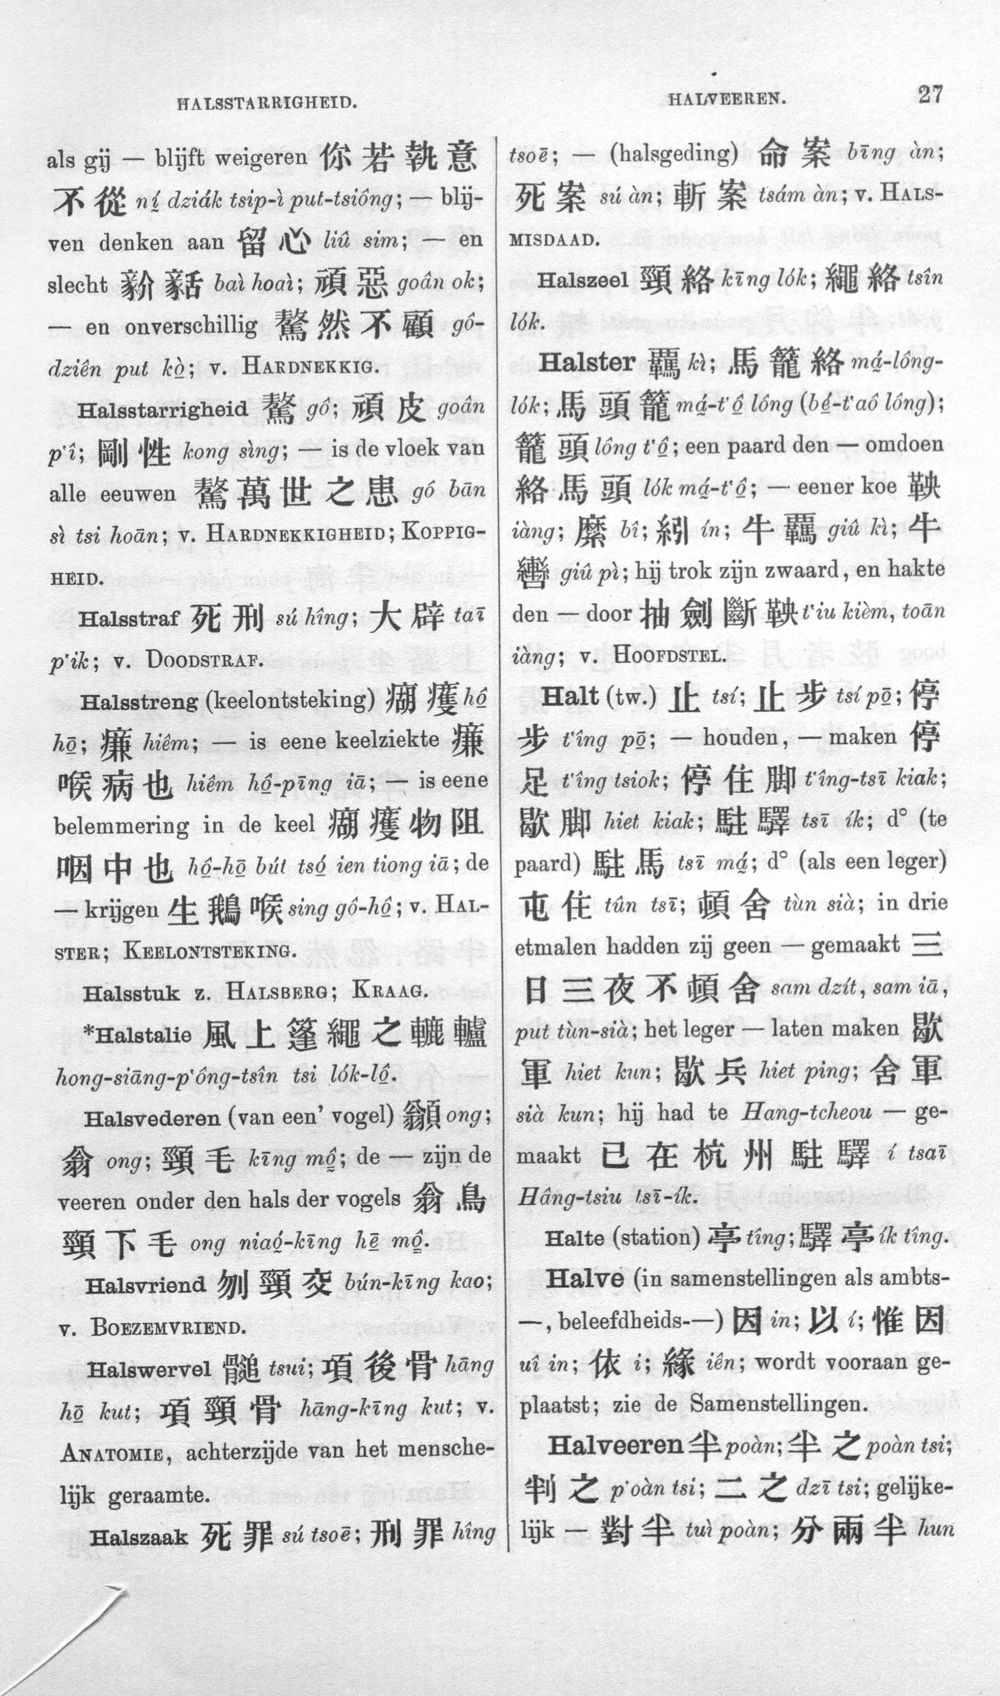 HALSSTARRIGHEID.
HALVEEREN. 27
als gij — blijft weigeren 你若執意
不從 ní dziák tsip-ì put-tsiông; — blij-
ven denken aan 留心 liû sim; — en
slecht baì hoaì; 頑惡 goân ok;
— en onverschillig 驁然不顧 gô-
dziên put kò; v. HARDNEKKIG.
Halsstarrigheid 驁 gô; 頑皮 goân
p'î; 剛性 kong sìng; — is de vloek van
alle eeuwen 驁萬世之患 gô bān
sì tsi hoān; v. HARDNEKKIGHEID; KOPPIG-
HEID.
Halsstraf 死刑 sú hîng; 大辟 taī
p'ik; v. DOODSTRAF.
Halsstreng (keelontsteking) hô
hō; hiêm; — is eene keelziekte
喉病也 hiêm hô-pīng iā; — is eene
belemmering in de keel 物阻
咽中也 hô-hō bút tsó ien tiong iā; de
— krijgen 生鵝喉 sing gô-hô; v. HAL-
STER; KEELONTSTEKING.
Halsstuk z. HALSBERG; KRAAG.
*Halstalie 風上篷繩之轆轤
hong-siāng-p'ông-tsîn tsi lók-lô.
Halsvederen (van een' vogel) ong;
翁 ong; 頸毛 kīng mô; de — zijn de
veeren onder den hals der vogels 翁鳥
頸下毛 ong niaó-kīng hē mô.
Halsvriend 刎頸交 bún-kīng kao;
v. BOEZEMVRIEND.
Halswervel 髓 tsui; 項後骨 hāng
hō kut; 項頸骨 hāng-kīng kut; v.
ANATOMIE, achterzijde van het mensche-
lijk geraamte.
Halszaak 死罪 sú tsoē; 刑罪 hîng
tsoē; — (halsgeding) 命案 bīng àn;
死案 sú àn; 斬案 tsám àn; v. HALS-
MISDAAD.
Halszeel 頸絡 kīng lók; 繩絡 tsîn
lók.
Halster 羈 kì; 馬籠絡 má-lông-
lók; 馬頭籠 má-t'ô lông (bé-t'aô lông);
籠頭 lông t'ô; een paard den — omdoen
絡馬頭 lók má-t'ô; — eener koe 鞅
iàng; 縻 bî; 紖 ín; 牛羈 giû kì; 牛
轡 giû pì; hij trok zijn zwaard, en hakte
den — door 抽劍斷鞅 t'iu kièm, toān
iàng; v. HOOFDSTEL.
Halt (tw.) 止 tsí; 止步 tsí pō; 停
步 t'îng pō; — houden, — maken 停
足 t'îng tsiok; 停住脚 t'îng-tsī kiak;
歇脚 hiet kiak; 駐驛 tsī ík; d° (te
paard) 駐馬 tsī má; d° (als een leger)
屯住 tûn tsī; 頓舍 tùn sià; in drie
etmalen hadden zij geen — gemaakt 三
日三夜不頓舍 sam dzít, sam iā,
put tùn-sià; het leger — laten maken 歇
軍 hiet kun; 歇兵 hiet ping; 舍軍
sià kun; hij had te Hang-tcheou — ge-
maakt 已在杭州駐驛 í tsaī
Hâng-tsiu tsī-ík.
Halte (station) 亭 tîng; 驛亭 ík tîng.
Halve (in samenstellingen als ambts-
—, beleefdheids-—) 因 in; 以 í; 惟因
uî in; 依 i; 緣 iên; wordt vooraan ge-
plaatst; zie de Samenstellingen.
Halveeren 半 poàn; 半之 poàn tsi;
判之 p'oàn tsi; 二之 dzī tsi; gelijke-
lijk — 對半 tuì poàn; 分兩半 hun